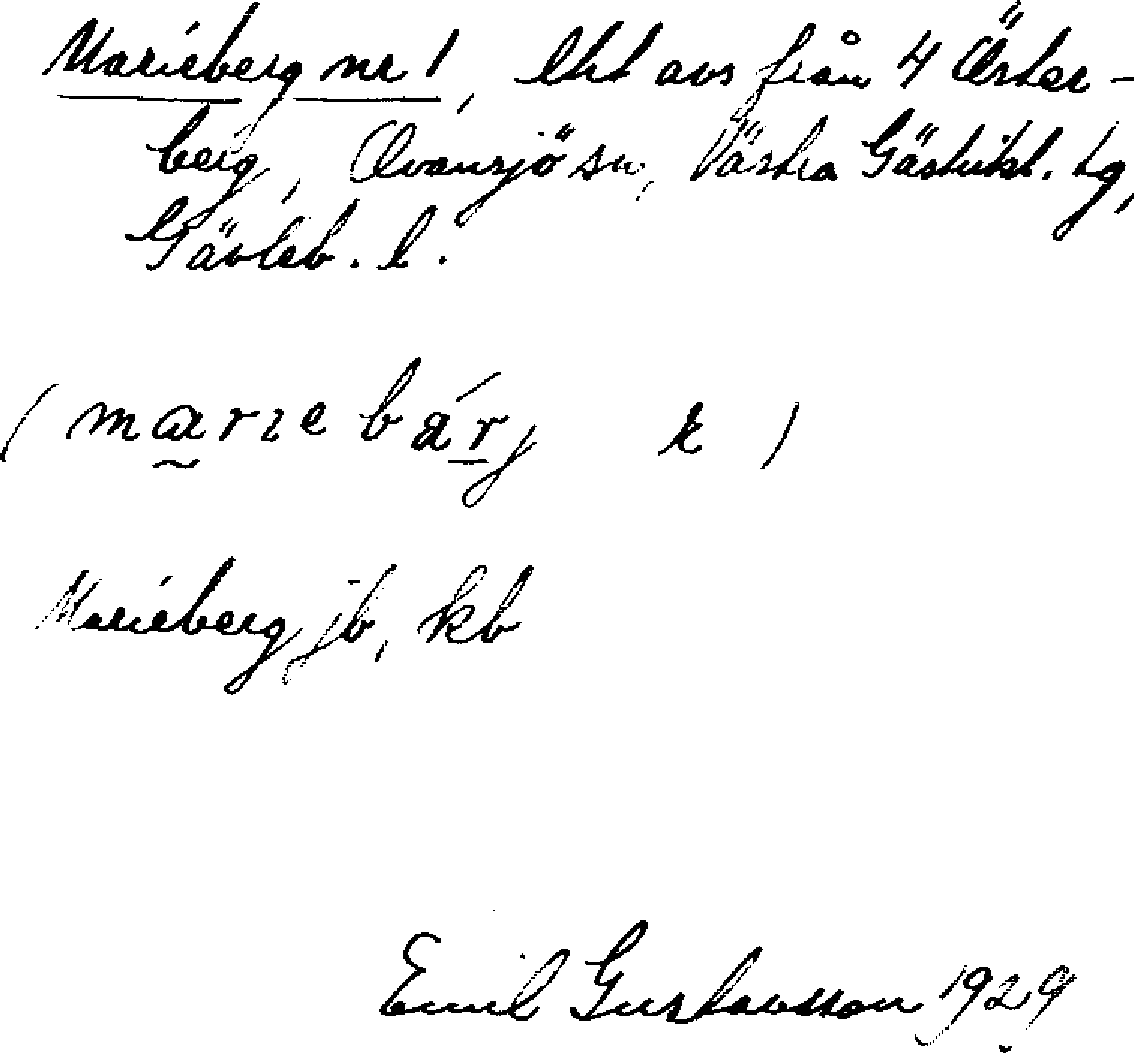 Marieberg nr 1, lht avs från 4 Öster-
berg, Ovansjö sn, Västra Gästrikl. tg,
Gävleb. l.
(marıebárj)
Marieberg jb, kb
Emil Gustavsson 1929